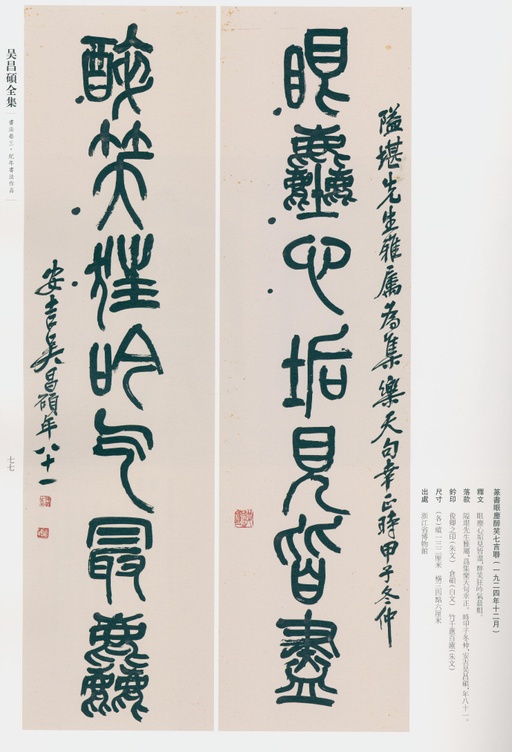 篆書眼塵醉笑七言聯（一九二四年十二月）
釋文 眼塵心垢見皆盡，醉笑狂吟氣最粗。
落款 隘堪先生雅屬，爲集樂天句幸正。時甲子冬仲，安吉吴昌碩，年八十一。
鈐印 俊卿之印（朱文） 倉碩（白文）（朱文）
尺寸 （各）縱一三二厘米 橫三四點六厘米
出處 浙江省博物館
隘堪先生雅屬為集樂天句幸正時甲子冬仲
眼塵心垢見皆盡
醉笑狂吟气最麤
安吉吴昌碩年八十一
吴昌碩全集
書法卷三·紀年書法作品
七七